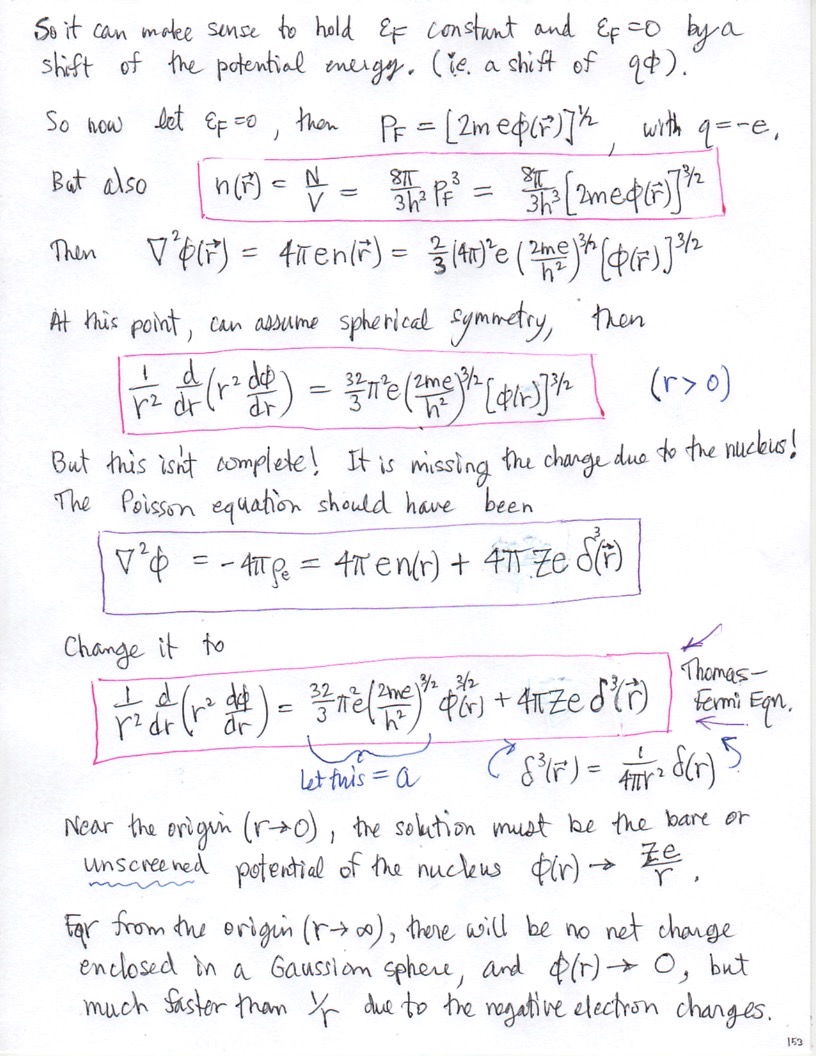 So it can make sense to hold εF constant and εF=0 by a
shift of the potential energy. (i.e. a shift of qϕ).
So now let εF=0, then PF = [2meϕ(r⃗)]^1/2, with q=-e.
But also n(r⃗) = N/V = 8π/3h³ PF³ = 8π/3h³ [2meϕ(r⃗)]^3/2
Then ∇²ϕ(r⃗) = 4πen(r⃗) = 2/3 (4π)²e (2me/h²)^3/2 [ϕ(r⃗)]^3/2
At this point, can assume spherical symmetry, then
1/r² d/dr (r² dϕ/dr) = 32/3 π²e (2me/h²)^3/2 [ϕ(r)]^3/2 (r>0)
But this isn't complete! It is missing the charge due to the nucleus!
The Poisson equation should have been
∇²ϕ = -4πρe = 4πen(r) + 4πZe δ³(r⃗)
Change it to
1/r² d/dr (r² dϕ/dr) = 32/3 π²e (2me/h²)^3/2 ϕ^3/2(r) + 4πZe δ³(r⃗)
Thomas-
Fermi Eqn.
Let this = a
δ³(r⃗) = 1/4πr² δ(r)
Near the origin (r→0), the solution must be the bare or
unscreened potential of the nucleus ϕ(r) → Ze/r.
Far from the origin (r→∞), there will be no net charge
enclosed in a Gaussian sphere, and ϕ(r)→ 0, but
much faster than 1/r due to the negative electron charges.
153